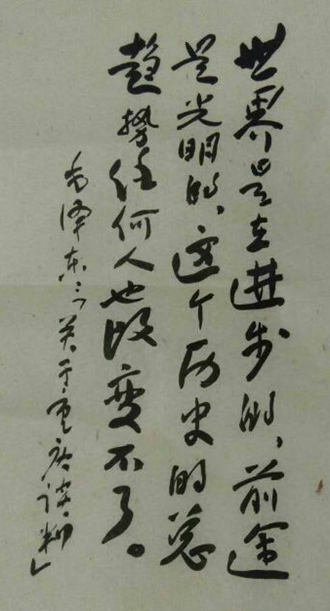 世界是在进步的，前途
是光明的，这个历史的总
趋势任何人也改变不了。
毛泽东：《关于重庆谈判》